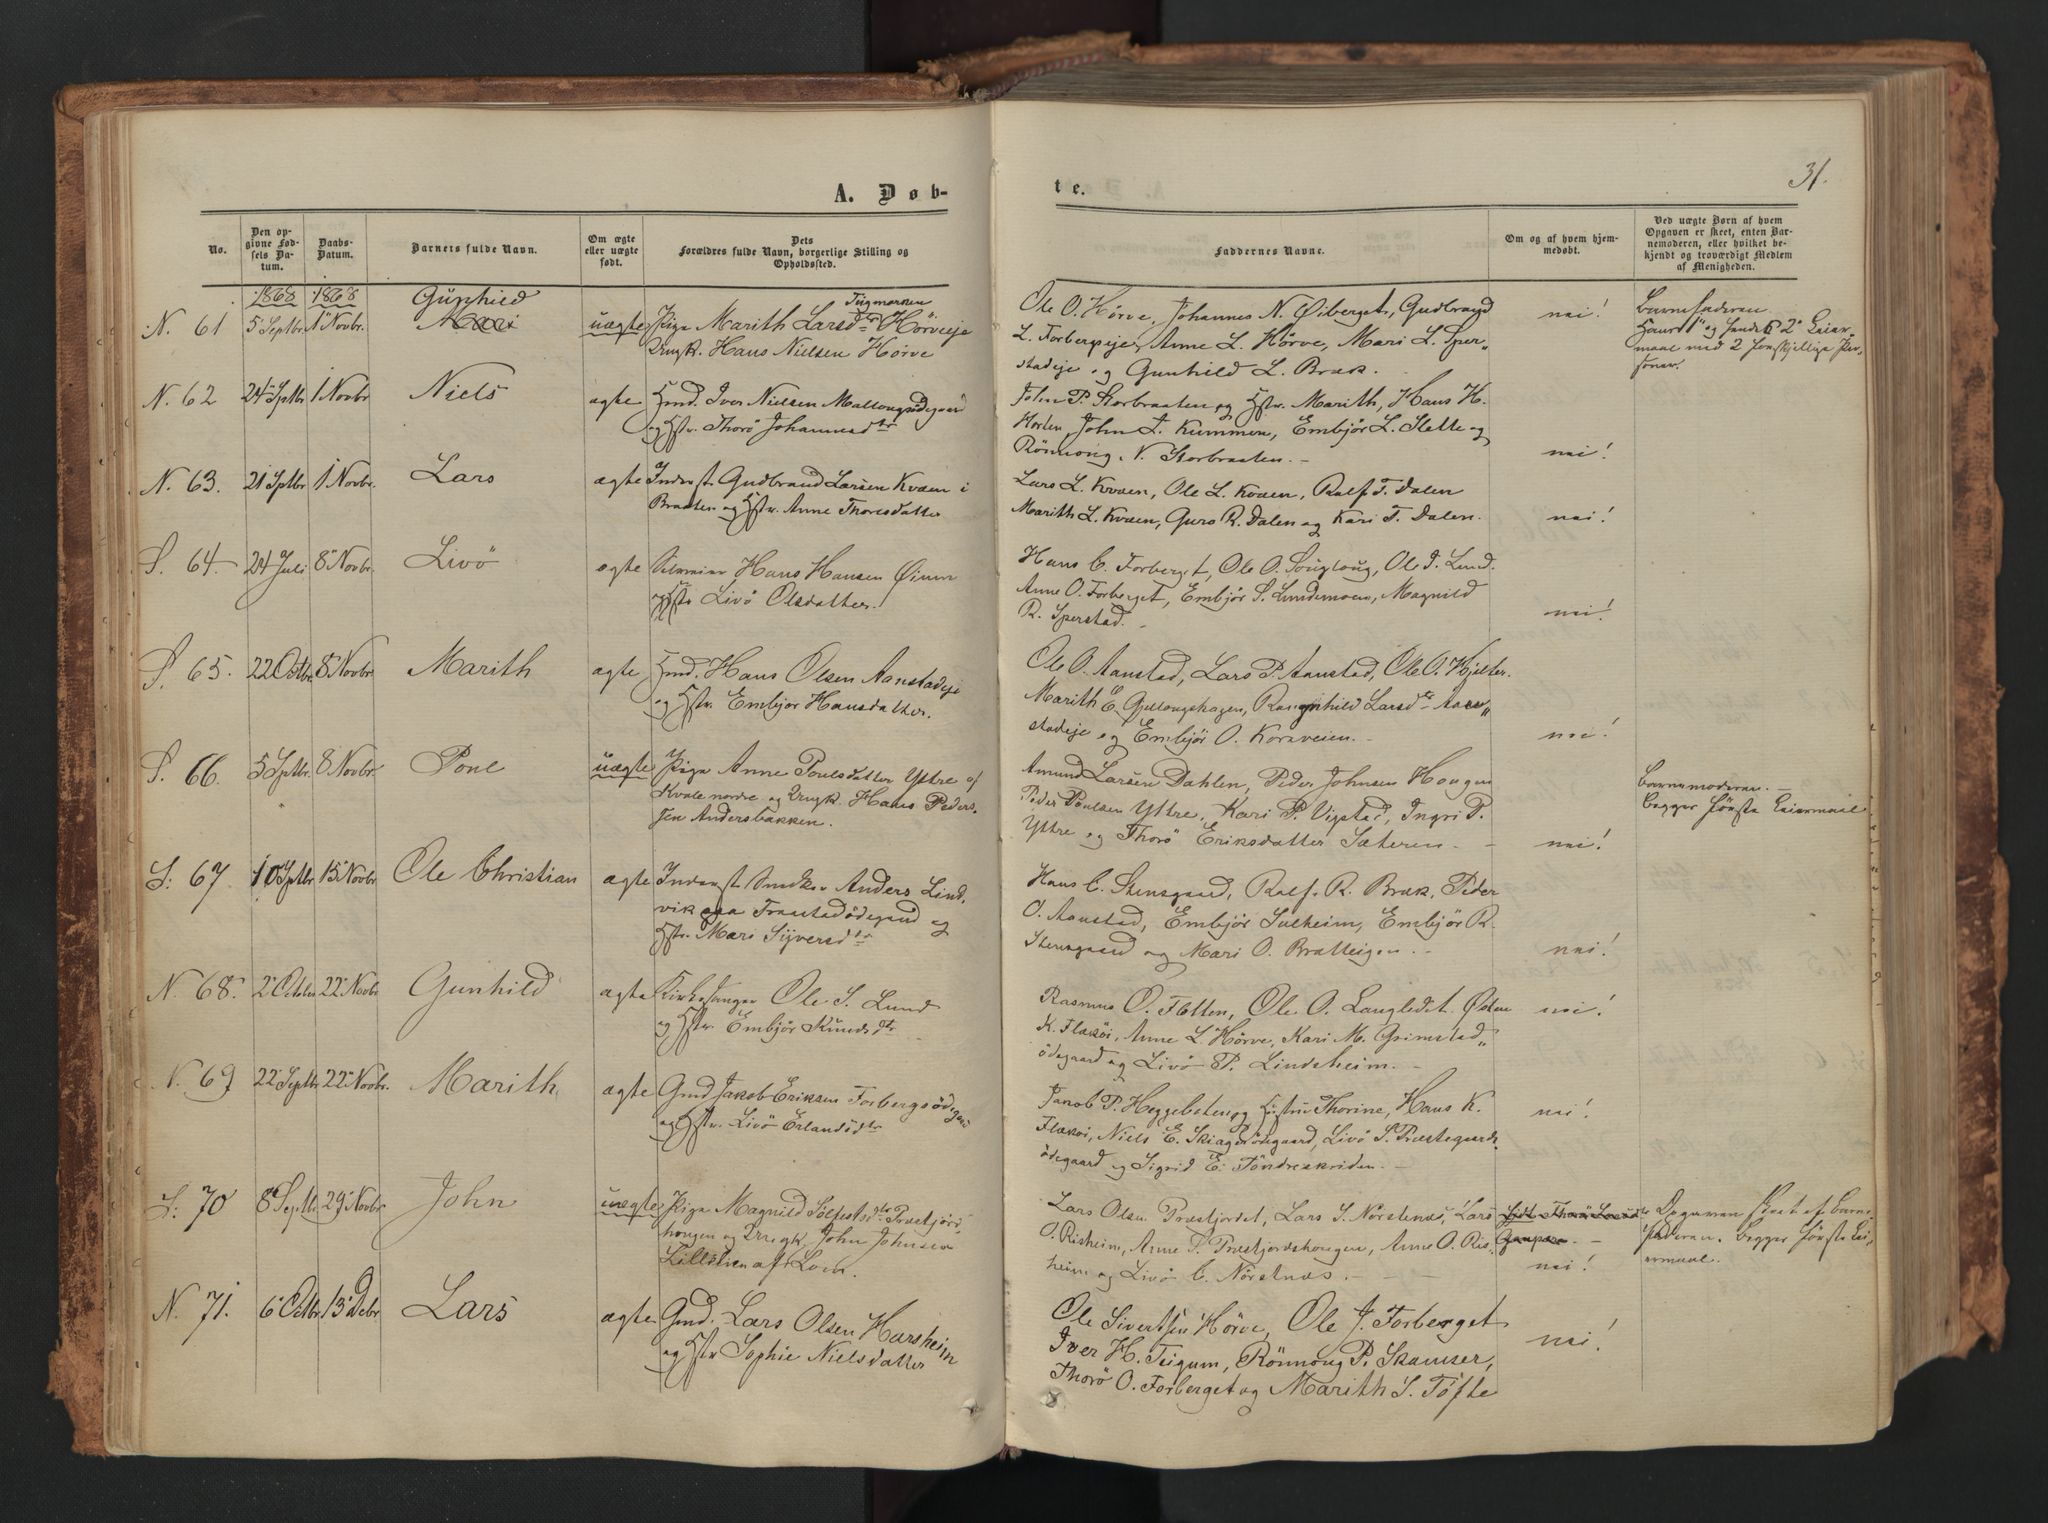 A. Døb-
te.
31.
No.
Den op-
givne Fød-
sels Da-
tum.
Daabs-
Datum.
Barnets fulde Navn.
Om ægte
eller uægte
født.
Dets
Forældres fulde Navn, borgerlige Stilling og
Opholdssted.
Faddernes Navne.
Om og af hvem hjem-
medøbt.
Ved uægte Børn af hvem
Opgaven er skeet, enten Bar-
nemoderen, eller hvilket be-
kjendt og troværdigt Medlem
af Menigheden.
1868 1868 Gunhild
N. 61 5 Septbr. 1 Novbr. uægte Pige Marith Larsdtr Hörveeje
Ungk. Hans Nielsen Hörve
Ole O. Hörve, Johannes N. Öiberget, Gudbrand
L. Forbergseje, Anne L. Hörve, Mari L. Sper-
stadeje og Gunhild L. Bræk.
nei!
Barnefaderen
Hans 1te og hendes 2de Leier-
maal med 2 forskjellige Per-
soner.
N. 62 24 Sptbr 1 Novbr Niels ægte Hmd. Iver Nielsen
og Hstr. Thorö Johannesdtr
John P. Storbraaten og Hstr. Marith, Hans H.
Horten, John L. Kummen, Embjör L. Slette og
Rönnoug N. Storbraaten. -
nei!
N. 63. 21 Sptbr 1 Novbr. Lars ægte Inderst Gudbrand Larsen Kvæn i
Braaten og Hstr. Anne Thoresdatter
Lars L. Kvæn, Ole L. Kvæn, Ralf T. Dalen
Marith L. Kvæn, Guro R. Dalen og Kari T. Dalen.
nei!
S. 64. 24 Juli 8 Novbr. Livö ægte Hans Hansen Öien
og Hstr Livö Olsdatter.
Hans C. Forberget, Ole O. Ole I. Lund.
Anne O. Forberget, Embjör S. Lundemoen, Magnild
R. Sperstad.
nei!
S. 65. 22 Octbr. 8 Novbr. Marith ægte Hmd. Hans Olsen Aanstadeje
og Hstr. Embjör Hansdatter.
Ole O. Aanstad, Lars P. Aanstad, Ole O. Hjelter.
Marith E. Gjellongshagen, Rangnhild Larsdtr Aan-
stadeje og Embjör O. Korsveien. -
nei!
S. 66. 5 Sptbr. 8 Novbr. Poul uægte Pige Anne Poulsdatter Yttre af
Kvale nordre og Ungk. Hans Peder-
sen Andersbakken.
Amund Larsen Dahlen, Peder Johnsen Hougen
Peder Poulsen Yttre, Kari P. Vigstad, Ingri P.
Yttre og Thorö Eriksdatter Sæteren. -
nei!
Barnemoderen. -
Begges förste Leiermaal
S. 67 10 Sptbr. 15 Novbr Ole Christian ægte Inderst Smed Anders Lind-
vik paa Fraastadödegaard og
Hstr. Mari Siversdtr
Hans C. Stensgaard, Ralf R. Bræk, Peder
O. Aanstad, Embjör Sulheim, Embjör R.
Stensgaard og Mari O. Bratteigen. -
nei!
N. 68. 2 Octbr 22 Novbr Gunhild ægte Kirkesanger Ole S. Lund
og Hstr. Embjör Knudsdtr
Rasmus O. Flotten, Ole O. Langledet, Östen
K. Flæköi, Anne L. Hörve, Kari M. Grimstad-
ödegaard og Livö P. Lindsheim. -
nei!
N. 69 22 Septbr 22 Novbr. Marith ægte Gmd Jakob Eriksen Forbergsödegaard
og Hstr. Livö Erlandsdtr
Jakob P. Heggebotten og Hustru Thorine, Hans K.
Flækøi, Niels E. Skiagerödegaard, Livö S. Præstegaards-
ödegaard og Sigrid E. Töndreskriden. -
nei!
S. 70 8 Septbr 29 Novbr. John uægte Pige Magnild Sölfestsdtr Præstjords-
hougen og Ungk. John Johnsen
Lillöien af Lom.
Lars Olsen Præstjordet, Lars S. Nörstenæs, Lars
O. Risheim, Anne S. Præstjordshougen, Anne O. Ris-
heim og Livö C. Nörstnæs. -
nei!
Opgaven skeet af Barne-
faderen. Begges förste Lei-
ermaal.
N. 71. 6 Octbr 13 Debr Lars ægte Gmd. Lars Olsen Harsheim
og Hstr Sophie Nielsdatter
Ole Sivertsen Hörve, Ole J. Forberget
Iver H. Teigum, Rönnoug P. Skamser,
Thorö O. Forberget og Marith S. Töfte
nei!